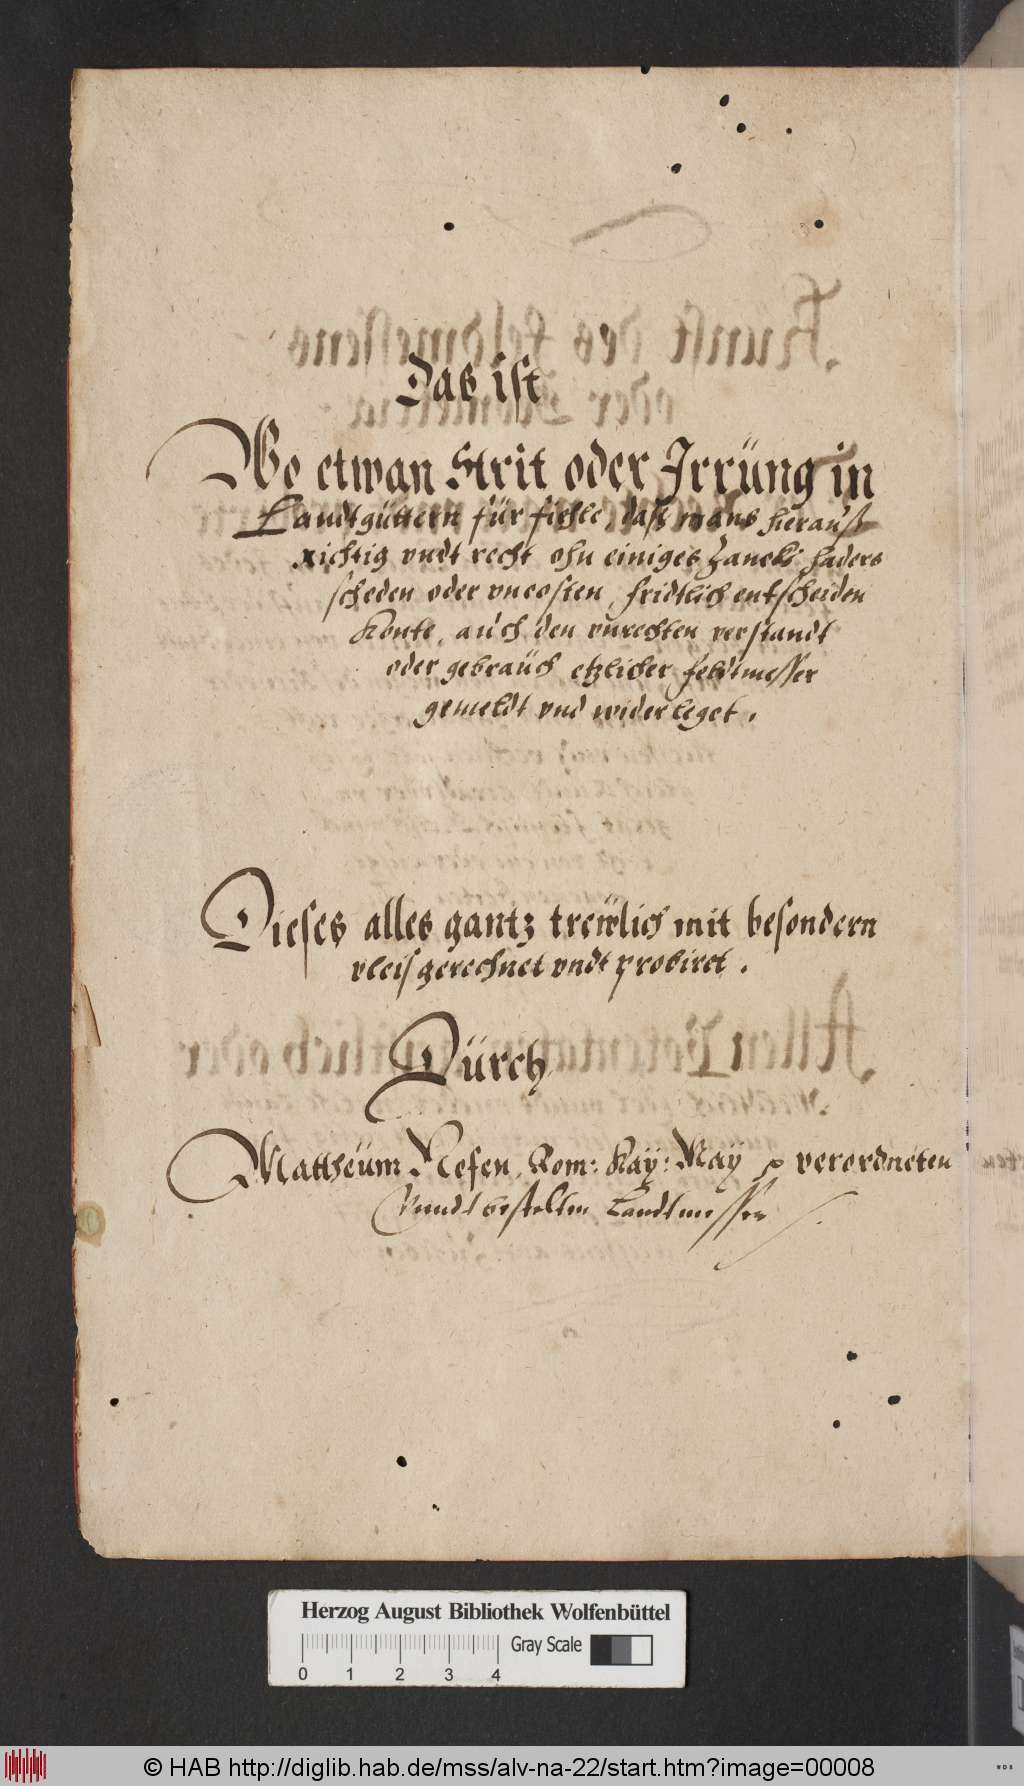 Das ist
Wo etwan Strit oder Irrüng in
Landtgüttern für fiehle, daß mans hierauß
richtig vndt recht ohn einiges Zancks haders
scheden oder vncosten, fridtlich entscheiden
Konte, auch den vnrechten verstandt
oder gebraüch etzlicher feldtmesser
gemeldt vnd widerleget.
Dieses alles gantz trewlich mit besondern
vleis gerechnet vndt probiret.
Dürch
Mattheüm Nefen, Rom: Kay: May verordneten
Vnndt bestelten Landtmesser
Herzog August Bibliothek Wolfenbüttel
Gray Scale
0 1 2 3 4
© HAB http://diglib.hab.de/mss/alv-na-22/start.htm?image=00008